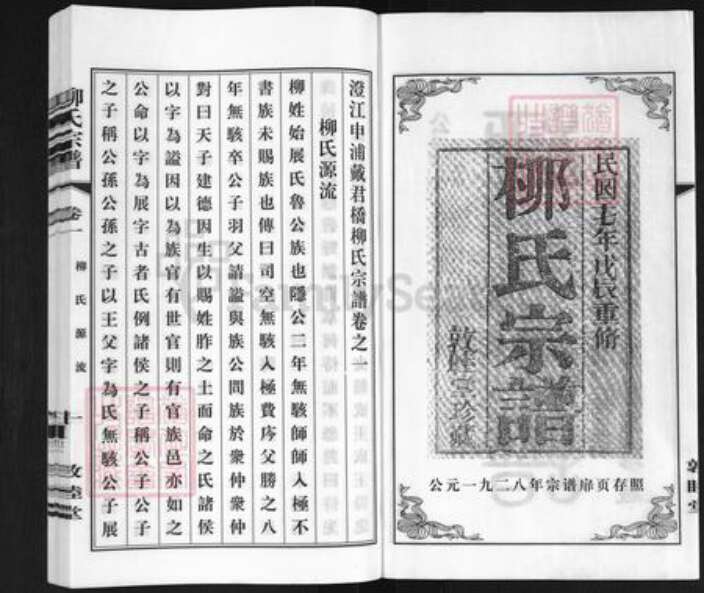 民囯十七年戊辰重脩
柳氏宗譜
敦睦堂珍藏
公元一九二八年宗谱扉页存照
澄江申浦戴君橋柳氏宗譜卷之一
柳氏源流
柳姓始展氏魯公族也隱公二年無駭師師入極不
書族未賜族也傳曰司空無駭入極費庈父勝之八
年無駭卒公子羽父請謚與族公問族於衆仲衆仲
對曰天子建德因生以賜姓胙之土而命之氏諸侯
以字為謚因以為族官有世官則有官族邑亦如之
公命以字為展字古者氏例諸侯之子稱公子公子
之子稱公孫公孫之子以王父字為氏無駭公子展
柳氏宗譜
卷一
柳氏源流
一
敦睦堂
FamilySearch